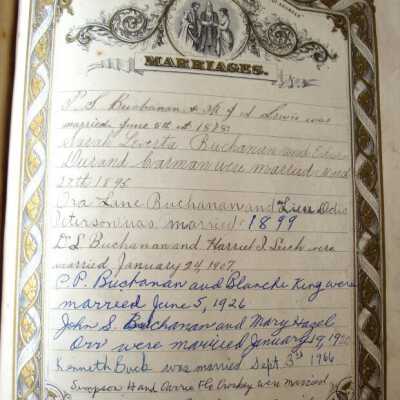 MARRIAGES.
P. S. Buchanan & Lewis was
married June 5th at 1873
Sarah Levesta Buchanan and
Durand Carman were married
27th 1895
Ora Lane Buchanan and
Peterson was married 1899
L. S. Buchanan and Harriet I. Leich were
married January 24 1907
P.P. Buchanan and Blanche King were
married June 5, 1926
John S. Buchanan and Mary Hazel
Orr were married January 19, 19
Kenneth Buck was married Sept. 3rd 1966
Simpson H and Carrie Flo Croskey were married